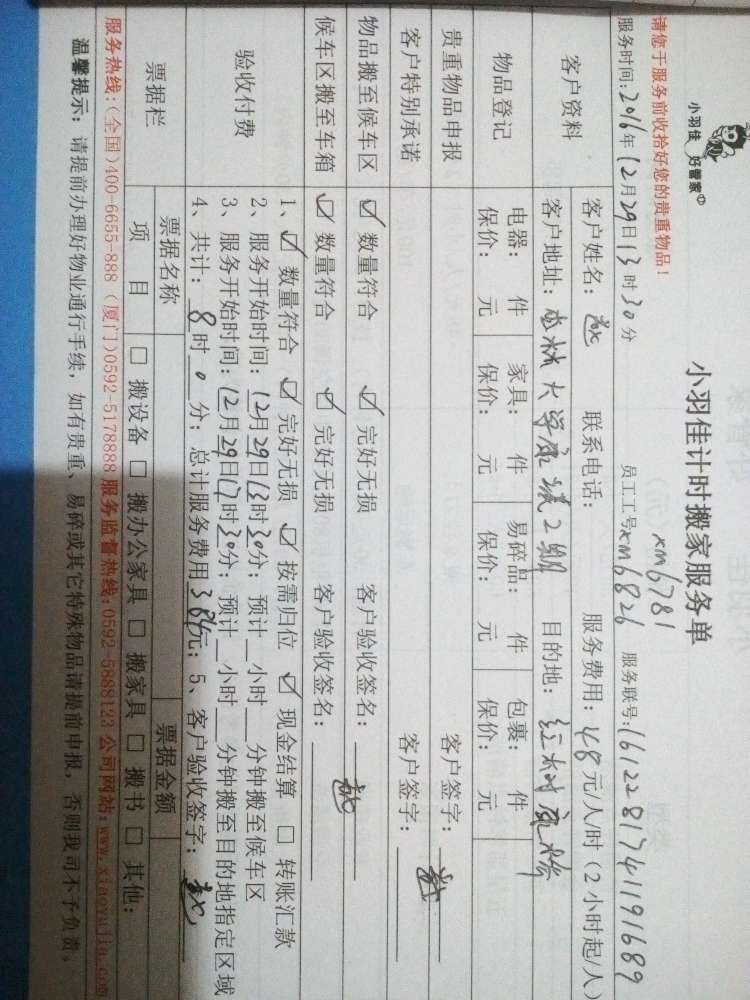 小羽佳 好管家
小羽佳计时搬家服务单
请您于服务前收拾好您的贵重物品!
xm6781
服务时间:2016年12月29日13时30分 员工工号xm6826 服务联号:1612281741191689
客户资料
客户姓名: 赵 联系电话: 服务费用:48元/人/时(2小时起/人)
客户地址: 大学 2 目的地: 红木树
物品登记
电器: 件 家具: 件 易碎品: 件 包裹: 件
保价: 元 保价: 元 保价: 元 保价: 元
贵重物品申报 客户签字:
客户特别承诺 客户签字:
物品搬至候车区 ☑ 数量符合 ☑ 完好无损 客户验收签名:
候车区搬至车箱 ☑ 数量符合 ☑ 完好无损 客户验收签名:
验收付费
1、☑ 数量符合 ☑ 完好无损 ☑ 按需归位 ☑ 现金结算 □ 转账汇款
2、服务开始时间:12月29日13时30分;预计__小时__分钟搬至候车区
3、服务开始时间:12月29日17时30分;预计__小时__分钟搬至目的地指定区域
4、共计:8时0分;总计服务费用384元;5、客户验收签字:
票据栏
票据名称 票据金额
项 目 □ 搬设备 □ 搬办公家具 □ 搬家具 □ 搬书 □ 其他:
服务热线:(全国)400-6655-888 (厦门)0592-5178888 服务监督热线:0592-5888123 公司网站:www.xiaoyujia.com
温馨提示:请提前办理好物业通行手续,如有贵重、易碎或其它特殊物品请提前申报,否则我司不予负责。